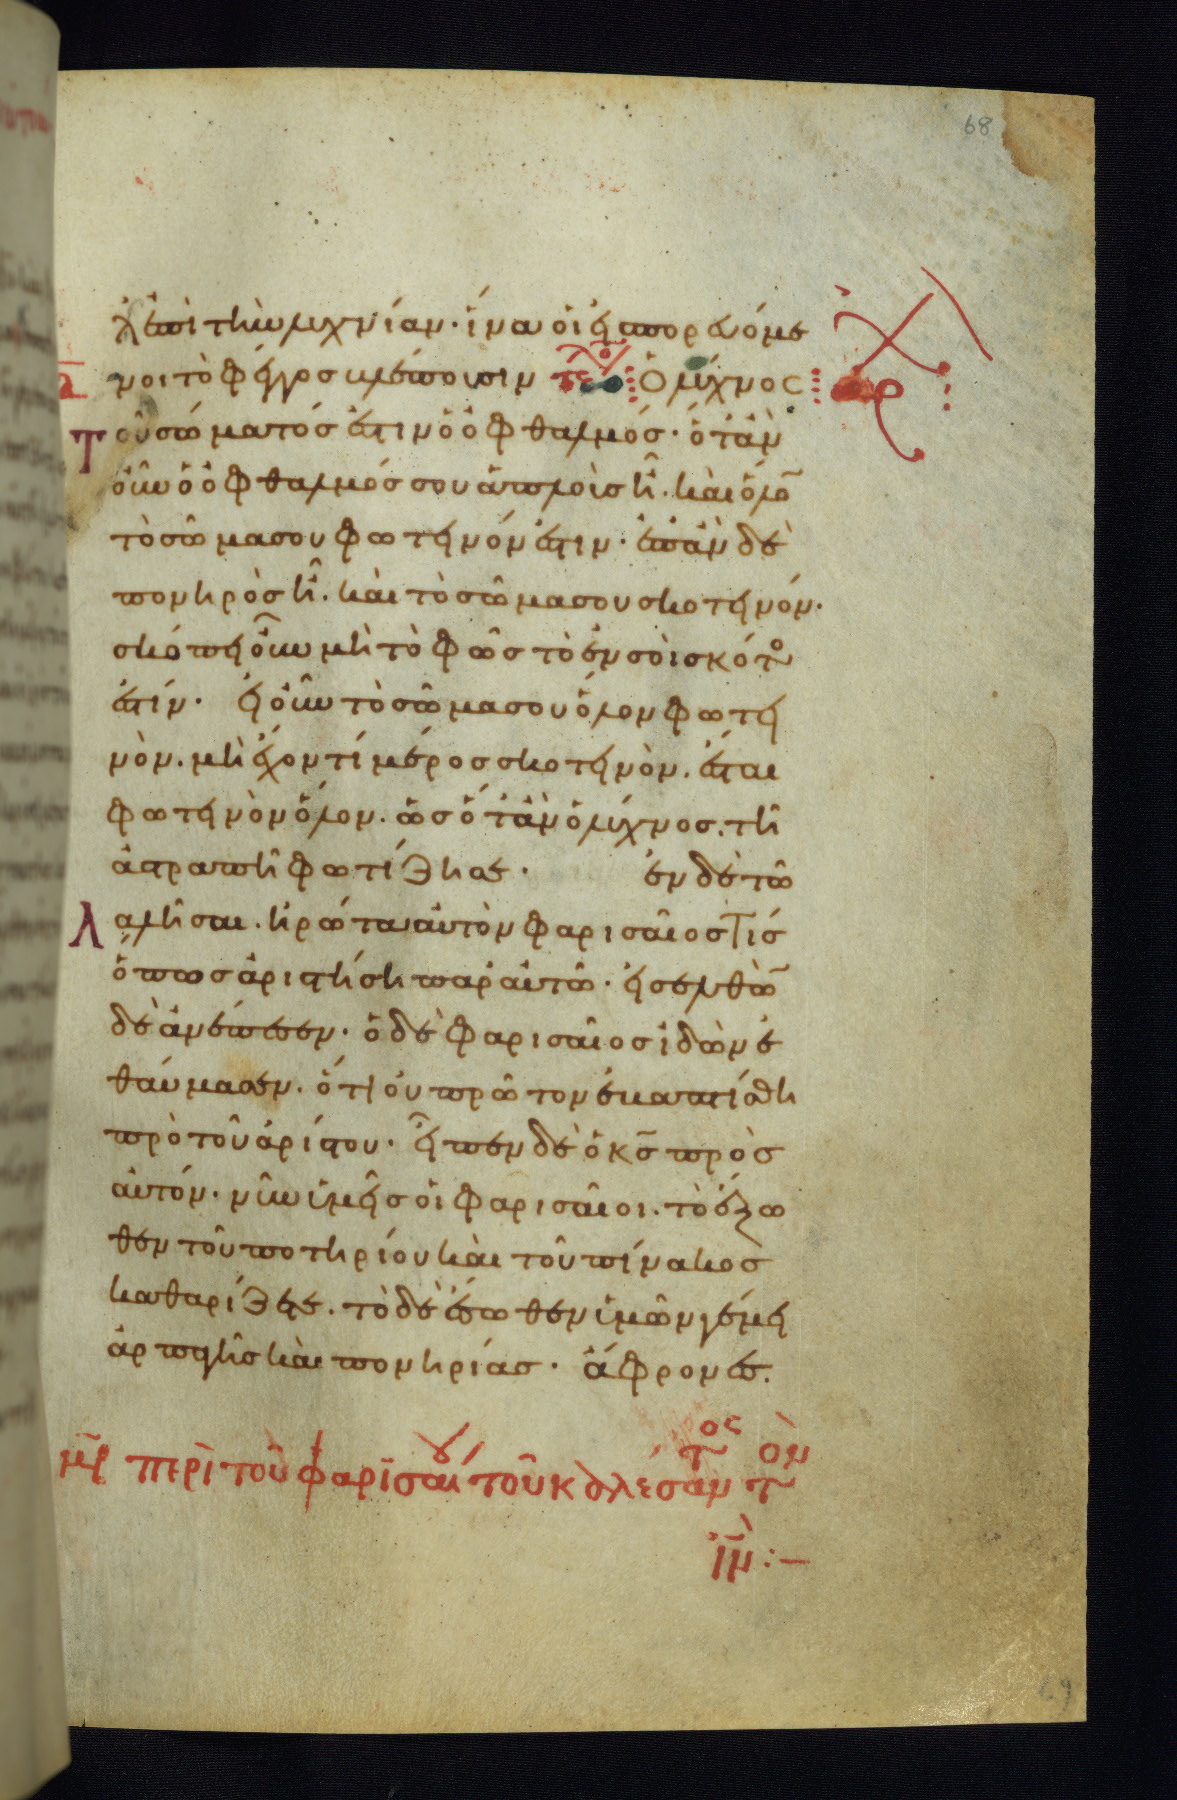 68
ἀλλ ἐπὶ τὴν λυχνίαν· ἵνα οἱ εἰσπορευόμε
νοι τὸ φέγγος βλέπουσιν τέλος Ὁ λύχνος αρχ
τοῦ σώματός ἐστιν ὁ ὀφθαλμός· ὅτὰν
οὖν ὁ ὀφθαλμός σου ἁπλοὶς ἦ. καὶ ὅλον
τὸ σῶμα σου φωτεινόν ἐστιν· ἐπὰν δὲ
πονηρὸς ἦ. καὶ τὸ σῶμα σου σκοτεινόν·
σκόπει οὖν μὴ τὸ φῶς τὸ ἐν σοὶ σκότος
ἐστίν· εἰ οὖν τὸ σῶμα σου ὅλον φωτει
νὸν. μὴ ἔχον τί μέρος σκοτεινὸν. ἔσται
φωτεινὸν ὅλον. ὡς ὅτὰν ὁ λύχνος. τῆ
ἀστραπῆ φωτίζη σε· ἐν δὲ τῶ
λαλῆσαι. ἠρώτα αὐτὸν φαρισαῖος τίς
ὅπως ἀριστήση παρ αὐτῶ· εἰσελθὼν
δὲ ἀνέπεσεν· ὁ δὲ φαρισαῖος ἰδὼν ἐ
θαύμασεν. ὅτι οὐ πρῶτον ἐβαπτίσθη
πρὸ τοῦ ἀρίστου· εἶπεν δὲ ὁ κς πρὸς
αὐτόν· νῦν ὑμεῖς οἱ φαρισαῖοι. τὸ ἔξω
θεν τοῦ ποτηρίου καὶ τοῦ πίνακος
καθαρίζετε. τὸ δὲ ἔσωθεν ὑμῶν γέμει
ἁρπαγῆς καὶ πονηρίας· ἄφρονες.
μβ περὶ τοῦ φαρϊσαίου τοῦ καλέσαντος τὸν
ιν :—